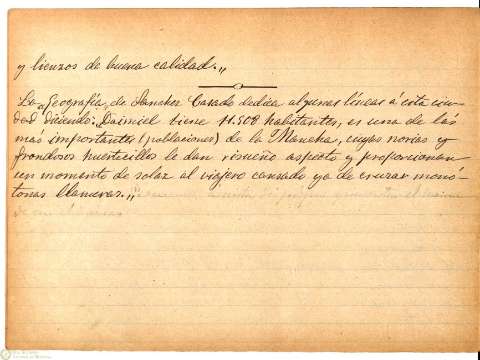 y lienzos de buena calidad.„
La „Geografía„ de Sanchez Casado dedica algunas líneas á esta ciu-
dad diciendo: „Daimiel tiene 11.508 habitantes, es una de las
mas importantes (poblaciones) de la Mancha, cuyas norias y
frondosos huertecillos le dan risueño aspecto y proporcionan
un momento de solaz al viajero cansado ya de cruzar monó-
tonas llanuras.„